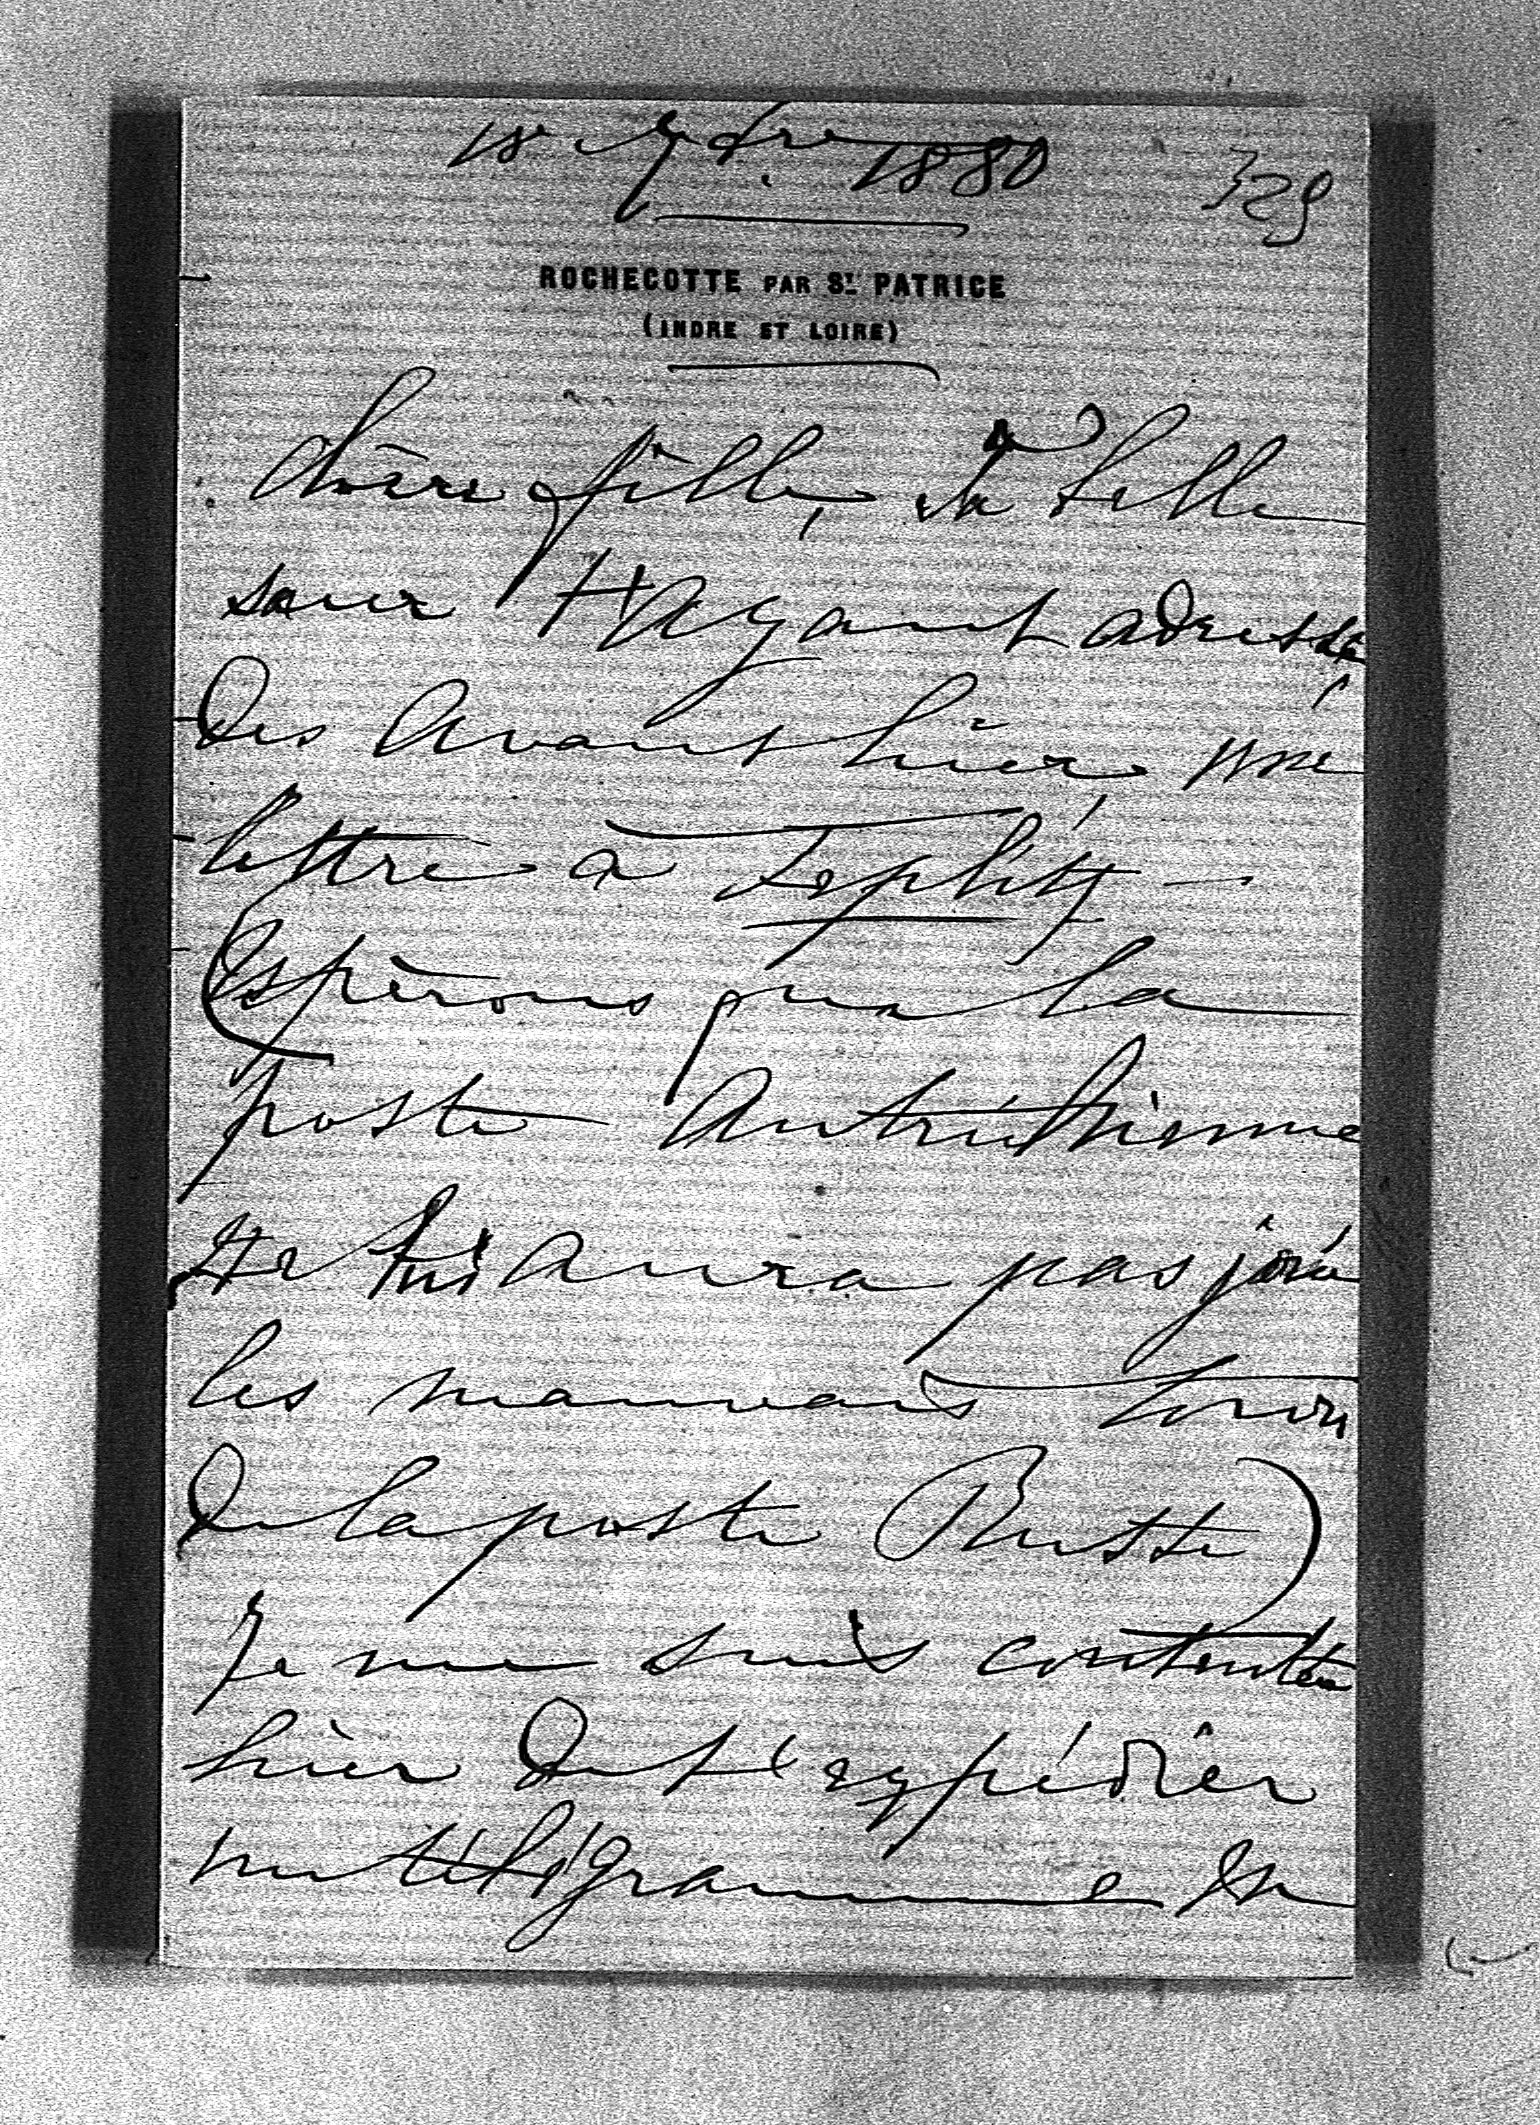 18 7bre 1880
329
ROCHECOTTE PAR ST. PATRICE
(INDRE ET LOIRE)
Chère fille, ta belle
sœur t'ayant adressé
dès avant hier une
lettre à Teplitz —
(Espérons que la
poste Autrichienne
ne lui aura pas joué
les mauvais tours
de la poste Russe)
Je me suis contentée
hier de t'expédier
un télégramme en